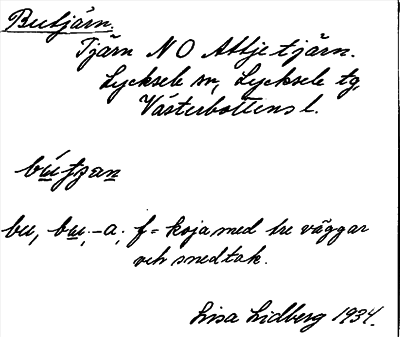 Butjärn.
Tjärn N O Attjetjärn.
Lycksele sn, Lycksele tg,
Västerbottens l.
bútjṇan
bu, bu, -a; f = koja med tre väggar
och snedtak.
Lisa Lidberg 1934.